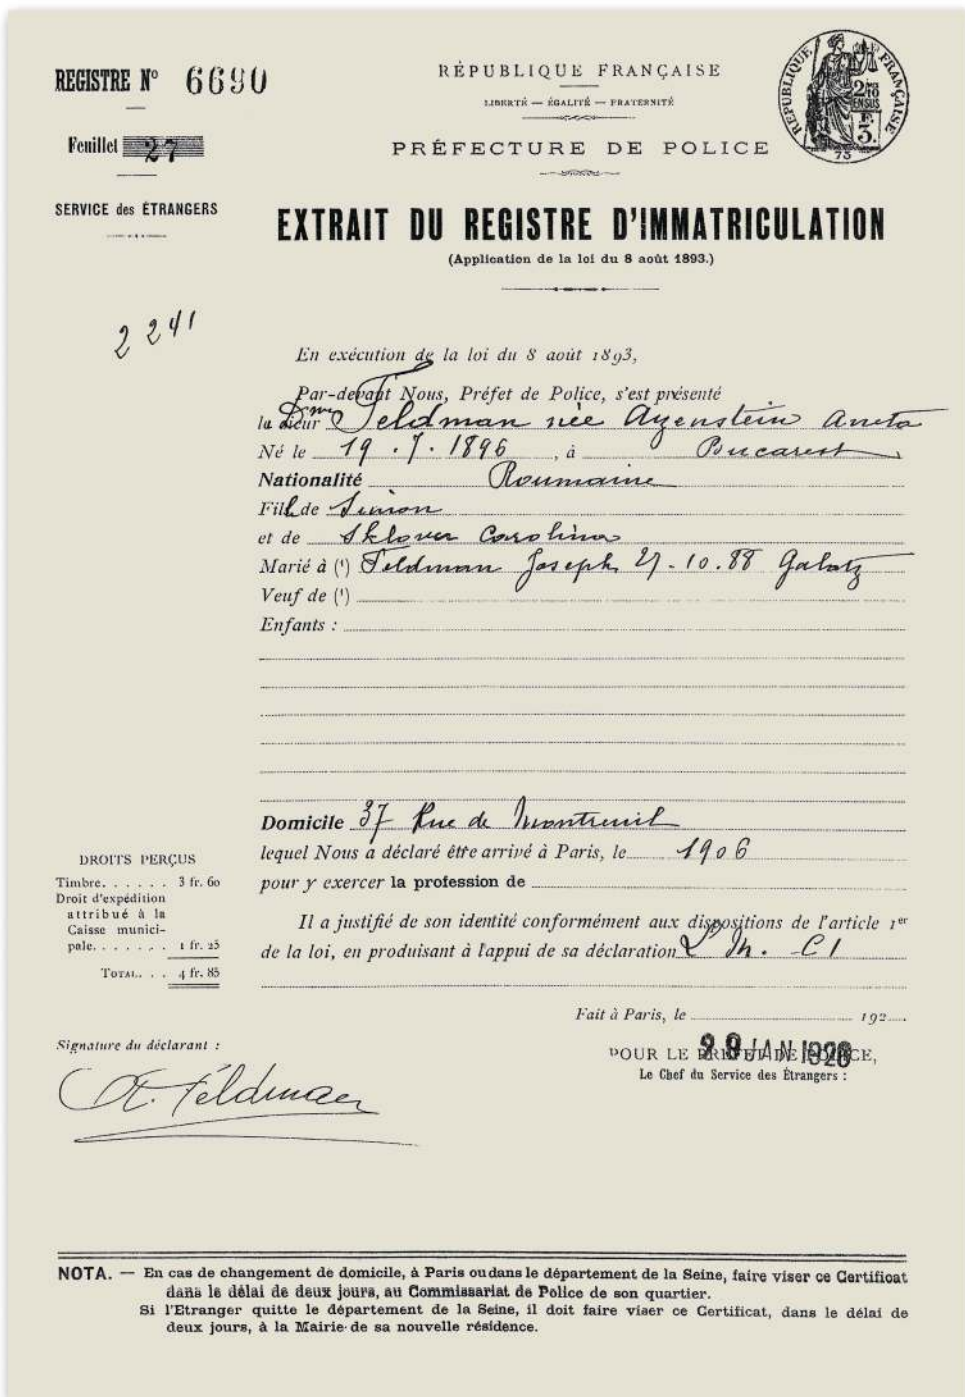 REGISTRE Nº 6690
Feuillet 27
SERVICE des ÉTRANGERS
RÉPUBLIQUE FRANÇAISE
LIBERTÉ — ÉGALITÉ — FRATERNITÉ
PRÉFECTURE DE POLICE
RÉPUBLIQUE FRANÇAISE
2/10
EN SUS
F.
3.
75
EXTRAIT DU REGISTRE D'IMMATRICULATION
(Application de la loi du 8 août 1893.)
2 241
En exécution de la loi du 8 août 1893,
Par-devant Nous, Préfet de Police, s'est présenté
la Dme Feldman née Ayenstein Aneta
Né le 19.7.1896, à Bucarest
Nationalité Roumaine
Fille de Simon
et de Sklover Carolina
Marié à (¹) Feldman Joseph 27-10.88 Galatz
Veuf de (¹)
Enfants :
Domicile 37 Rue de Montreuil
lequel Nous a déclaré être arrivé à Paris, le 1906
pour y exercer la profession de
Il a justifié de son identité conformément aux dispositions de l'article 1er
de la loi, en produisant à l'appui de sa déclaration L M. CI
DROITS PERÇUS
Timbre. . . . . . 3 fr. 60
Droit d'expédition
attribué à la
Caisse munici-
pale. . . . . . . 1 fr. 25
TOTAL. . . 4 fr. 85
Fait à Paris, le 192
29 JAN 1926
POUR LE PRÉFET DE POLICE,
Le Chef du Service des Étrangers :
Signature du déclarant :
A. Feldman
NOTA. — En cas de changement de domicile, à Paris ou dans le département de la Seine, faire viser ce Certificat
dans le délai de deux jours, au Commissariat de Police de son quartier.
Si l'Etranger quitte le département de la Seine, il doit faire viser ce Certificat, dans le délai de
deux jours, à la Mairie de sa nouvelle résidence.